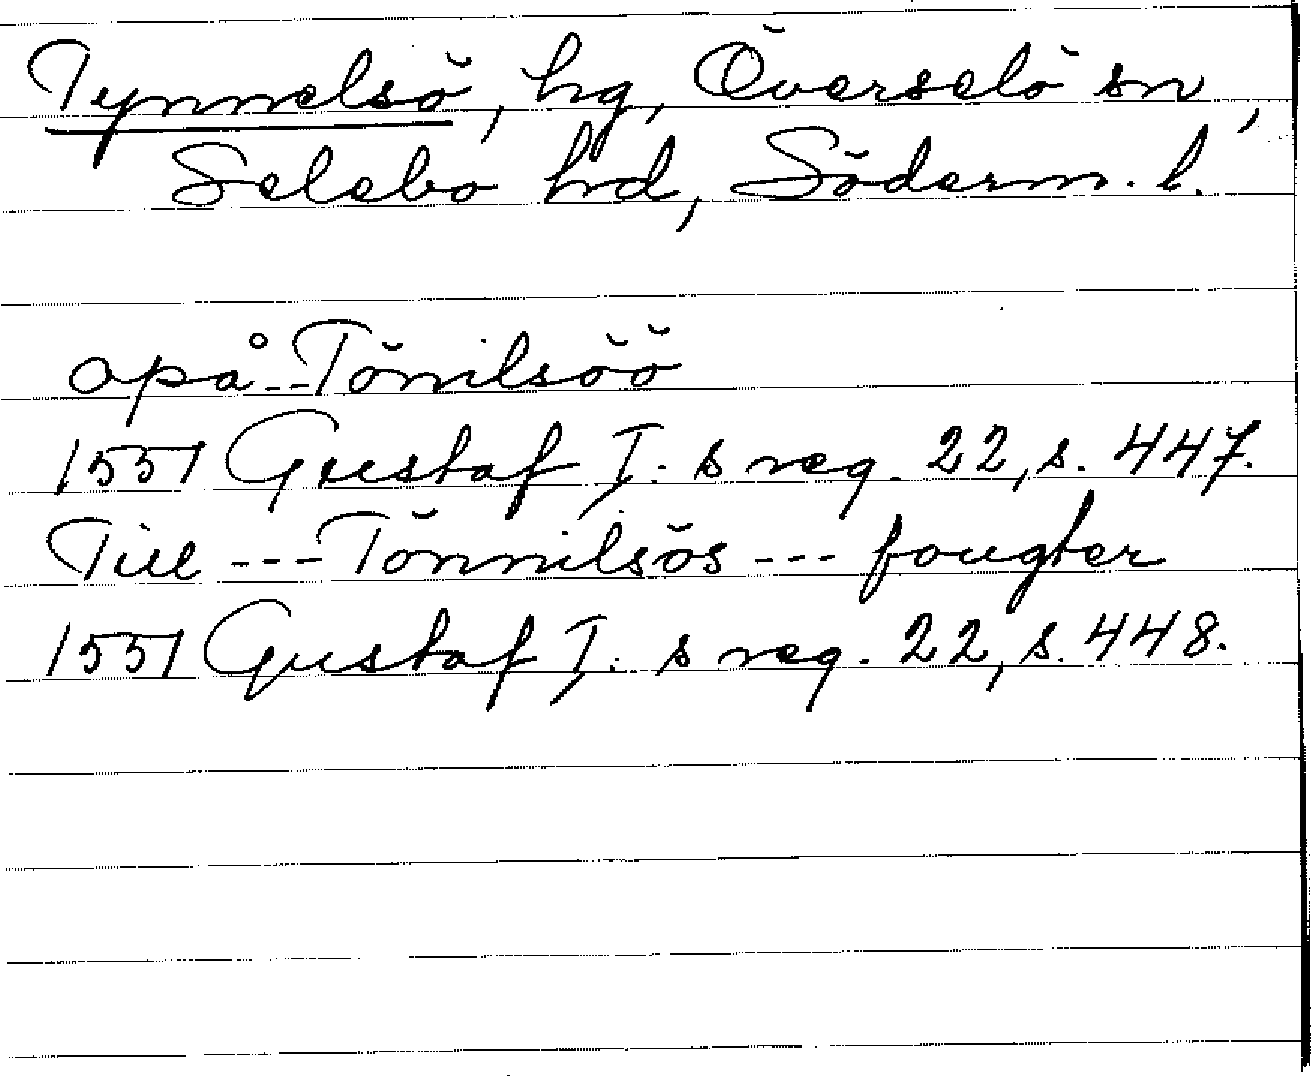 Tynnelsö, hg, Överselö sn,
Selebo hd, Söderm. l.
opå -- Tönilsöö
1551 Gustaf I:s reg. 22, s. 447.
Till --- Tönnilsös --- fougter
1551 Gustaf I:s reg. 22, s. 448.